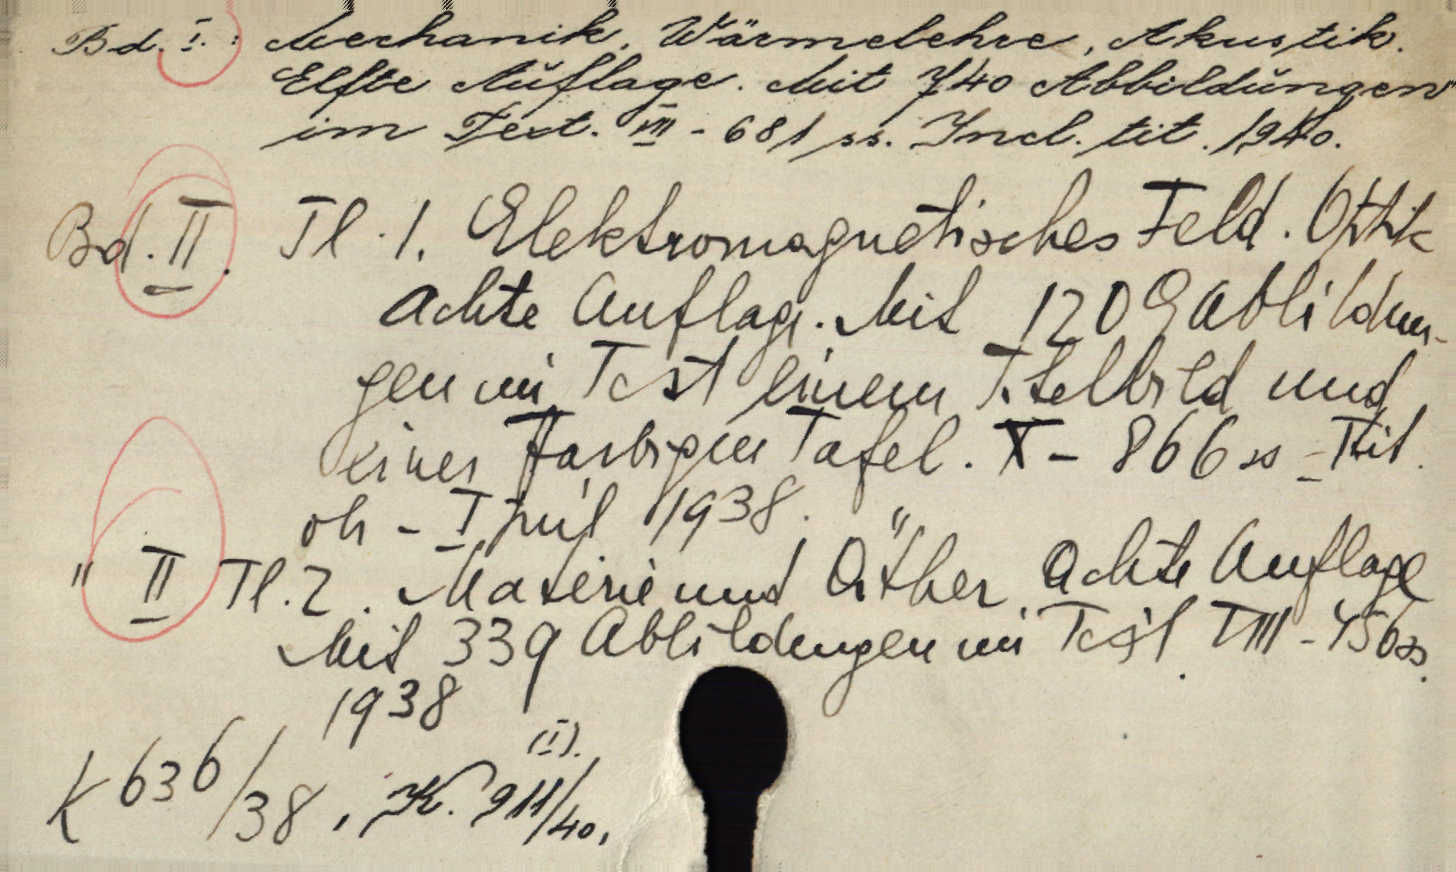 Bd. I. : Mechanik, Wärmelehre, Akustik.
Elfte Auflage. Mit 740 Abbildungen
im Text. VIII - 681 ss. Incl. tit. 1940.
Bd. II. Tl. 1. Elektromagnetisches Feld. Optik
Achte Auflage. Mit 1209 Abbildun-
gen im Text einem Titelbild und
einer farbigen Tafel. X - 866 ss - Tit.
1938.
" II Tl. 2. Materie und Äther. Achte Auflage
Mit 339 Abbildungen im Text VIII - 456 ss.
1938
(I).
K 636/38, K. 911/40.